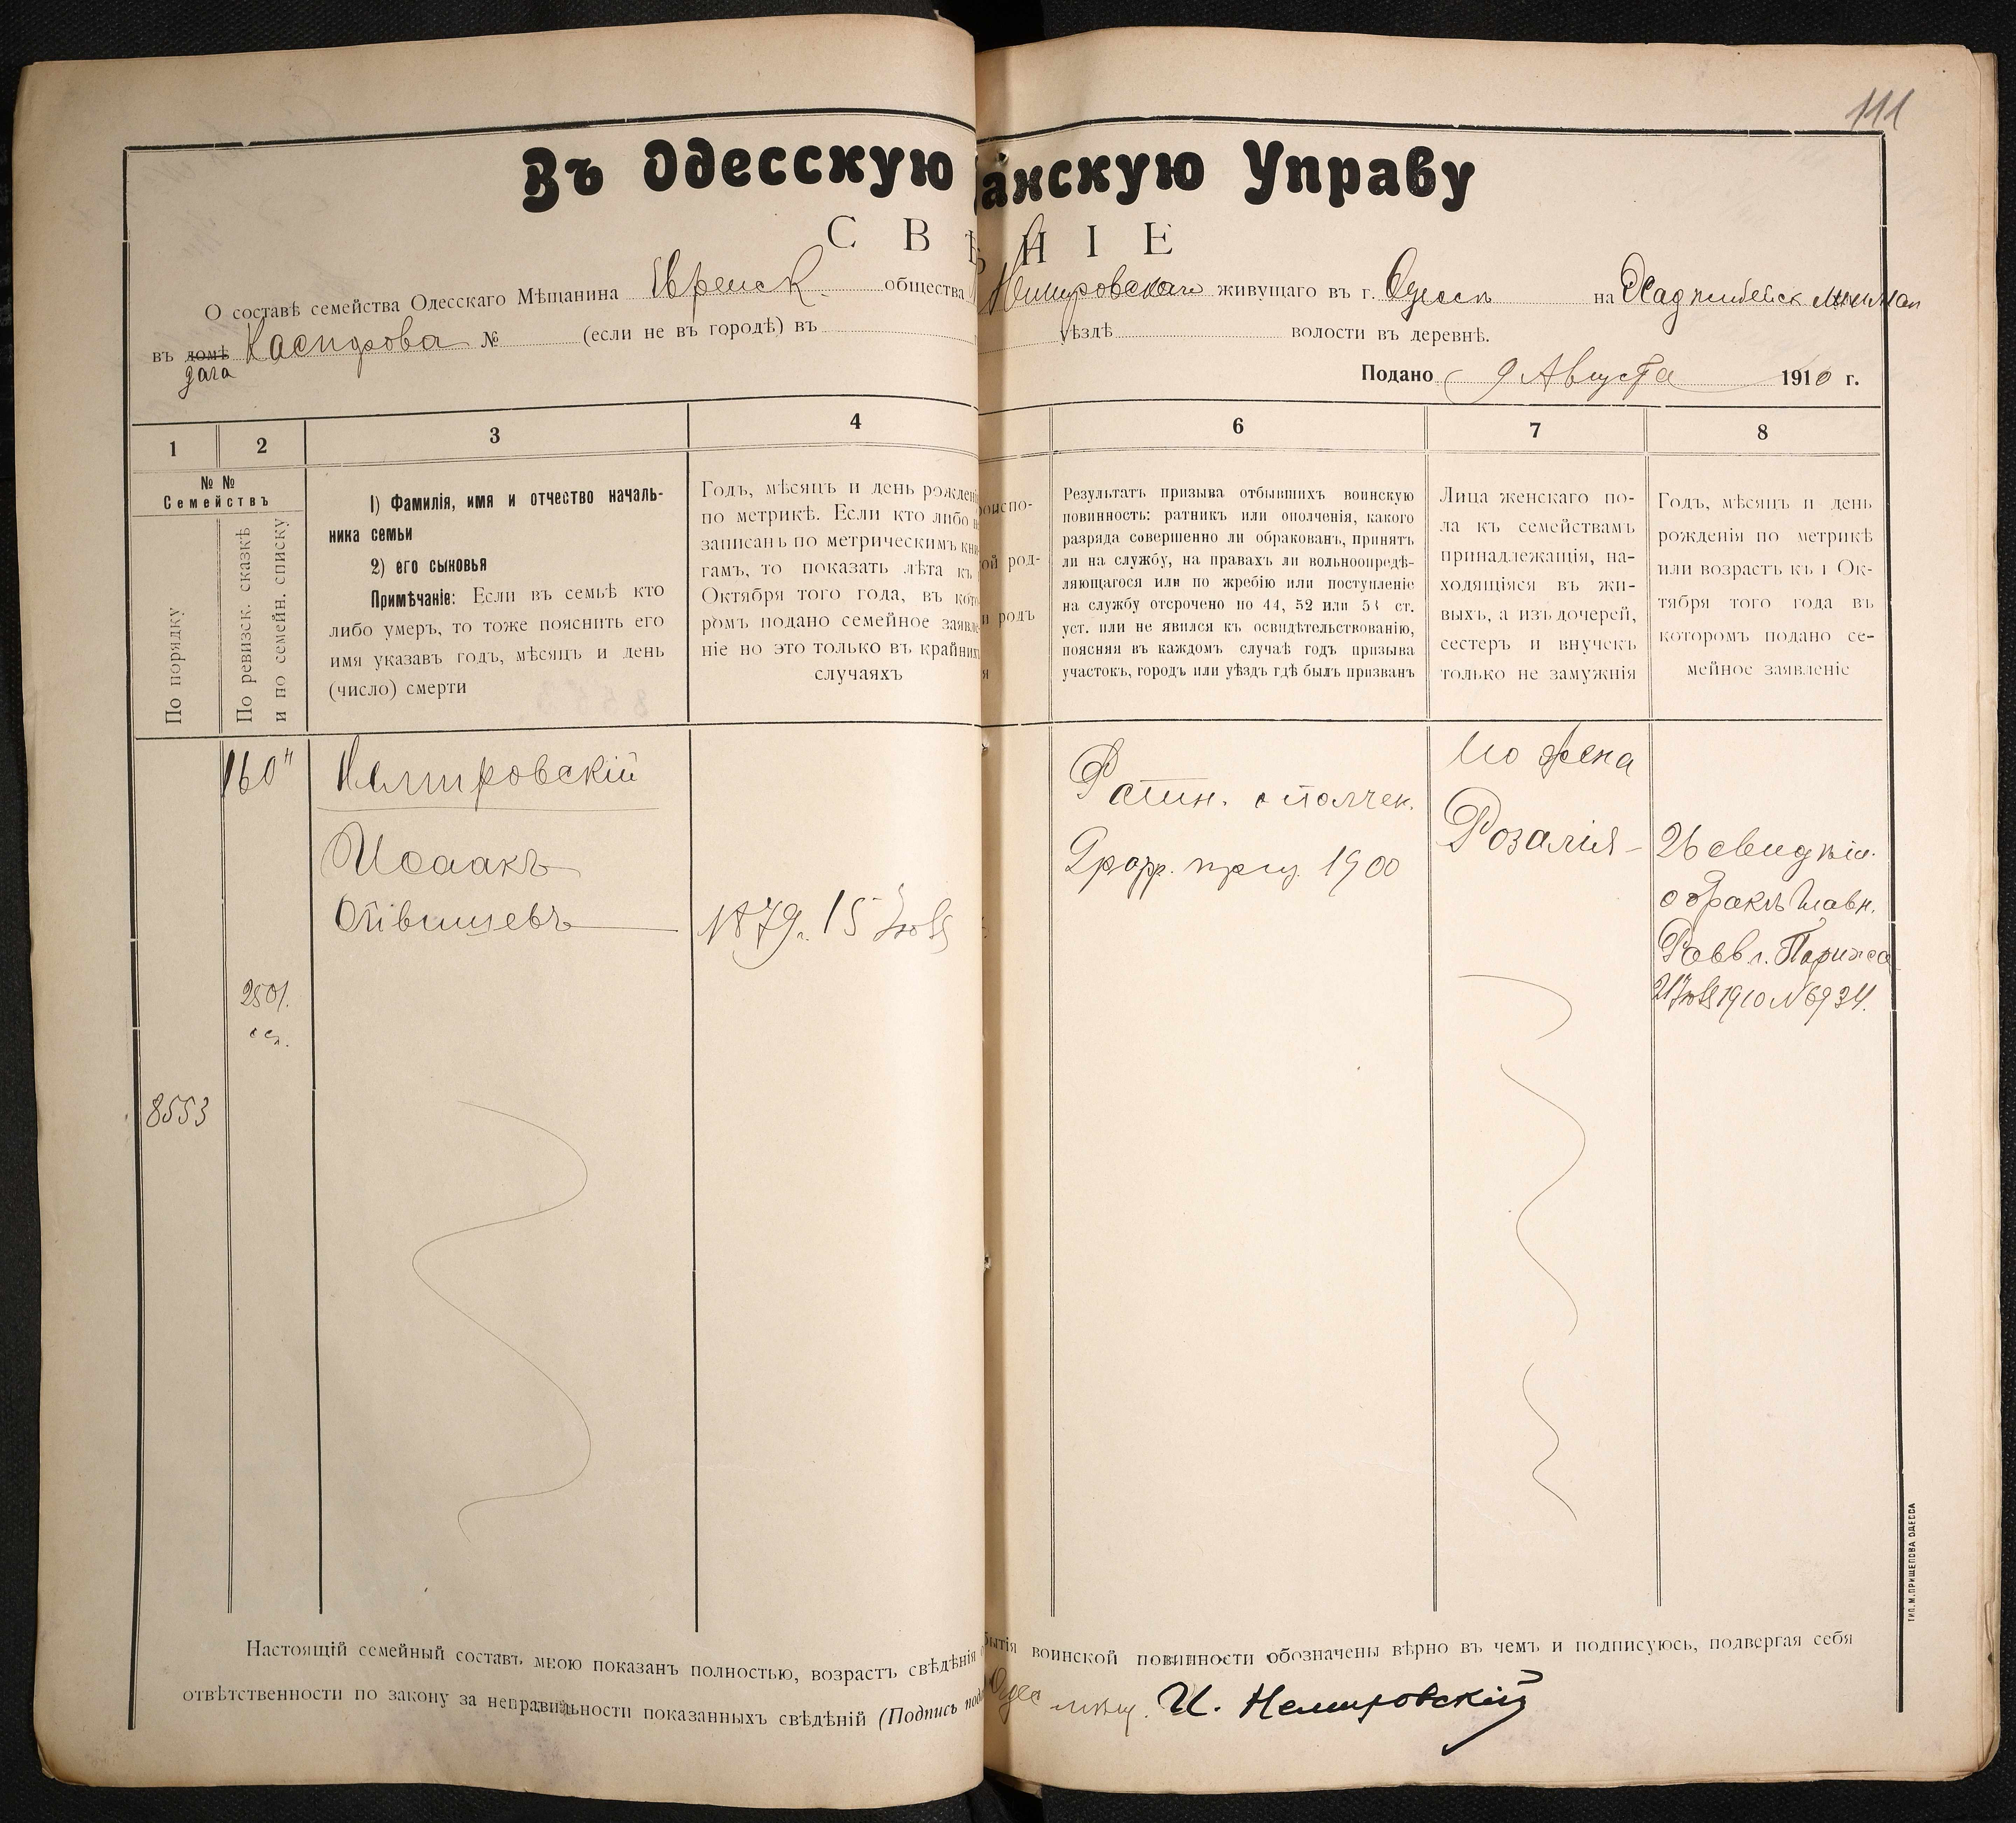 111
Въ Одесскую анскую Управу
С В Ѣ Н І Е
О составѣ семейства Одесскаго Мѣщанина Еврейск. общества Немировскаго живущаго въ г. Одессѣ на Хаджибейск лиман
въ домѣ Касидрова № (если не въ городѣ) въ уѣздѣ волости въ деревнѣ.
дача
Подано 9 Августа 1910 г.
1 2 3 4 6 7 8
№ №
Семействъ
По порядку
По ревизск. сказкѣ
и по семейн. списку
1) Фамилія, имя и отчество началь-
ника семьи
2) его сыновья
Примѣчаніе: Если въ семьѣ кто
либо умеръ, то тоже пояснить его
имя указавъ годъ, мѣсяцъ и день
(число) смерти
Годъ, мѣсяцъ и день рожденія
по метрикѣ. Если кто либо не
записанъ по метрическимъ кни-
гамъ, то показать лѣта къ
Октября того года, въ кото-
ромъ подано семейное заявле-
ніе но это только въ крайнихъ
случаяхъ
оиспо-
ой род-
и родъ
я
Результатъ призыва отбывшихъ воинскую
повинность: ратникъ или ополченія, какого
разряда совершенно ли обракованъ, принятъ
ли на службу, на правахъ ли вольноопредѣ-
ляющагося или по жребію или поступленіе
на службу отсрочено по 44, 52 или 53 ст.
уст. или не явился къ освидѣтельствованію,
поясняя въ каждомъ случаѣ годъ призыва
участокъ, городъ или уѣздъ гдѣ былъ призванъ
Лица женскаго по-
ла къ семействамъ
принадлежащія, на-
ходящіяся въ жи-
выхъ, а изъ дочерей,
сестеръ и внучекъ
только не замужнія
Годъ, мѣсяцъ и день
рожденія по метрикѣ
или возрастъ къ 1 Ок-
тября того года въ
которомъ подано се-
мейное заявленіе
160
Немировскій
Исаакъ
1879 г. 15
Ратн. ополчен.
2 разр. приз. 1900
жена
Розалія
26 свидѣт.
о бракѣ Главн.
Равв г. Парижа
21 1910 № 6934.
2501.
8553
Настоящій семейный составъ мною показанъ полностью, возрастъ свѣдѣнія бытія воинской повинности обозначены вѣрно въ чемъ и подписуюсь, подвергая себя
отвѣтственности по закону за неправильности показанныхъ свѣдѣній (Подпись Одес мѣщ. И. Немировскій
ТИП. М. ПРИЩЕПОВА ОДЕССА